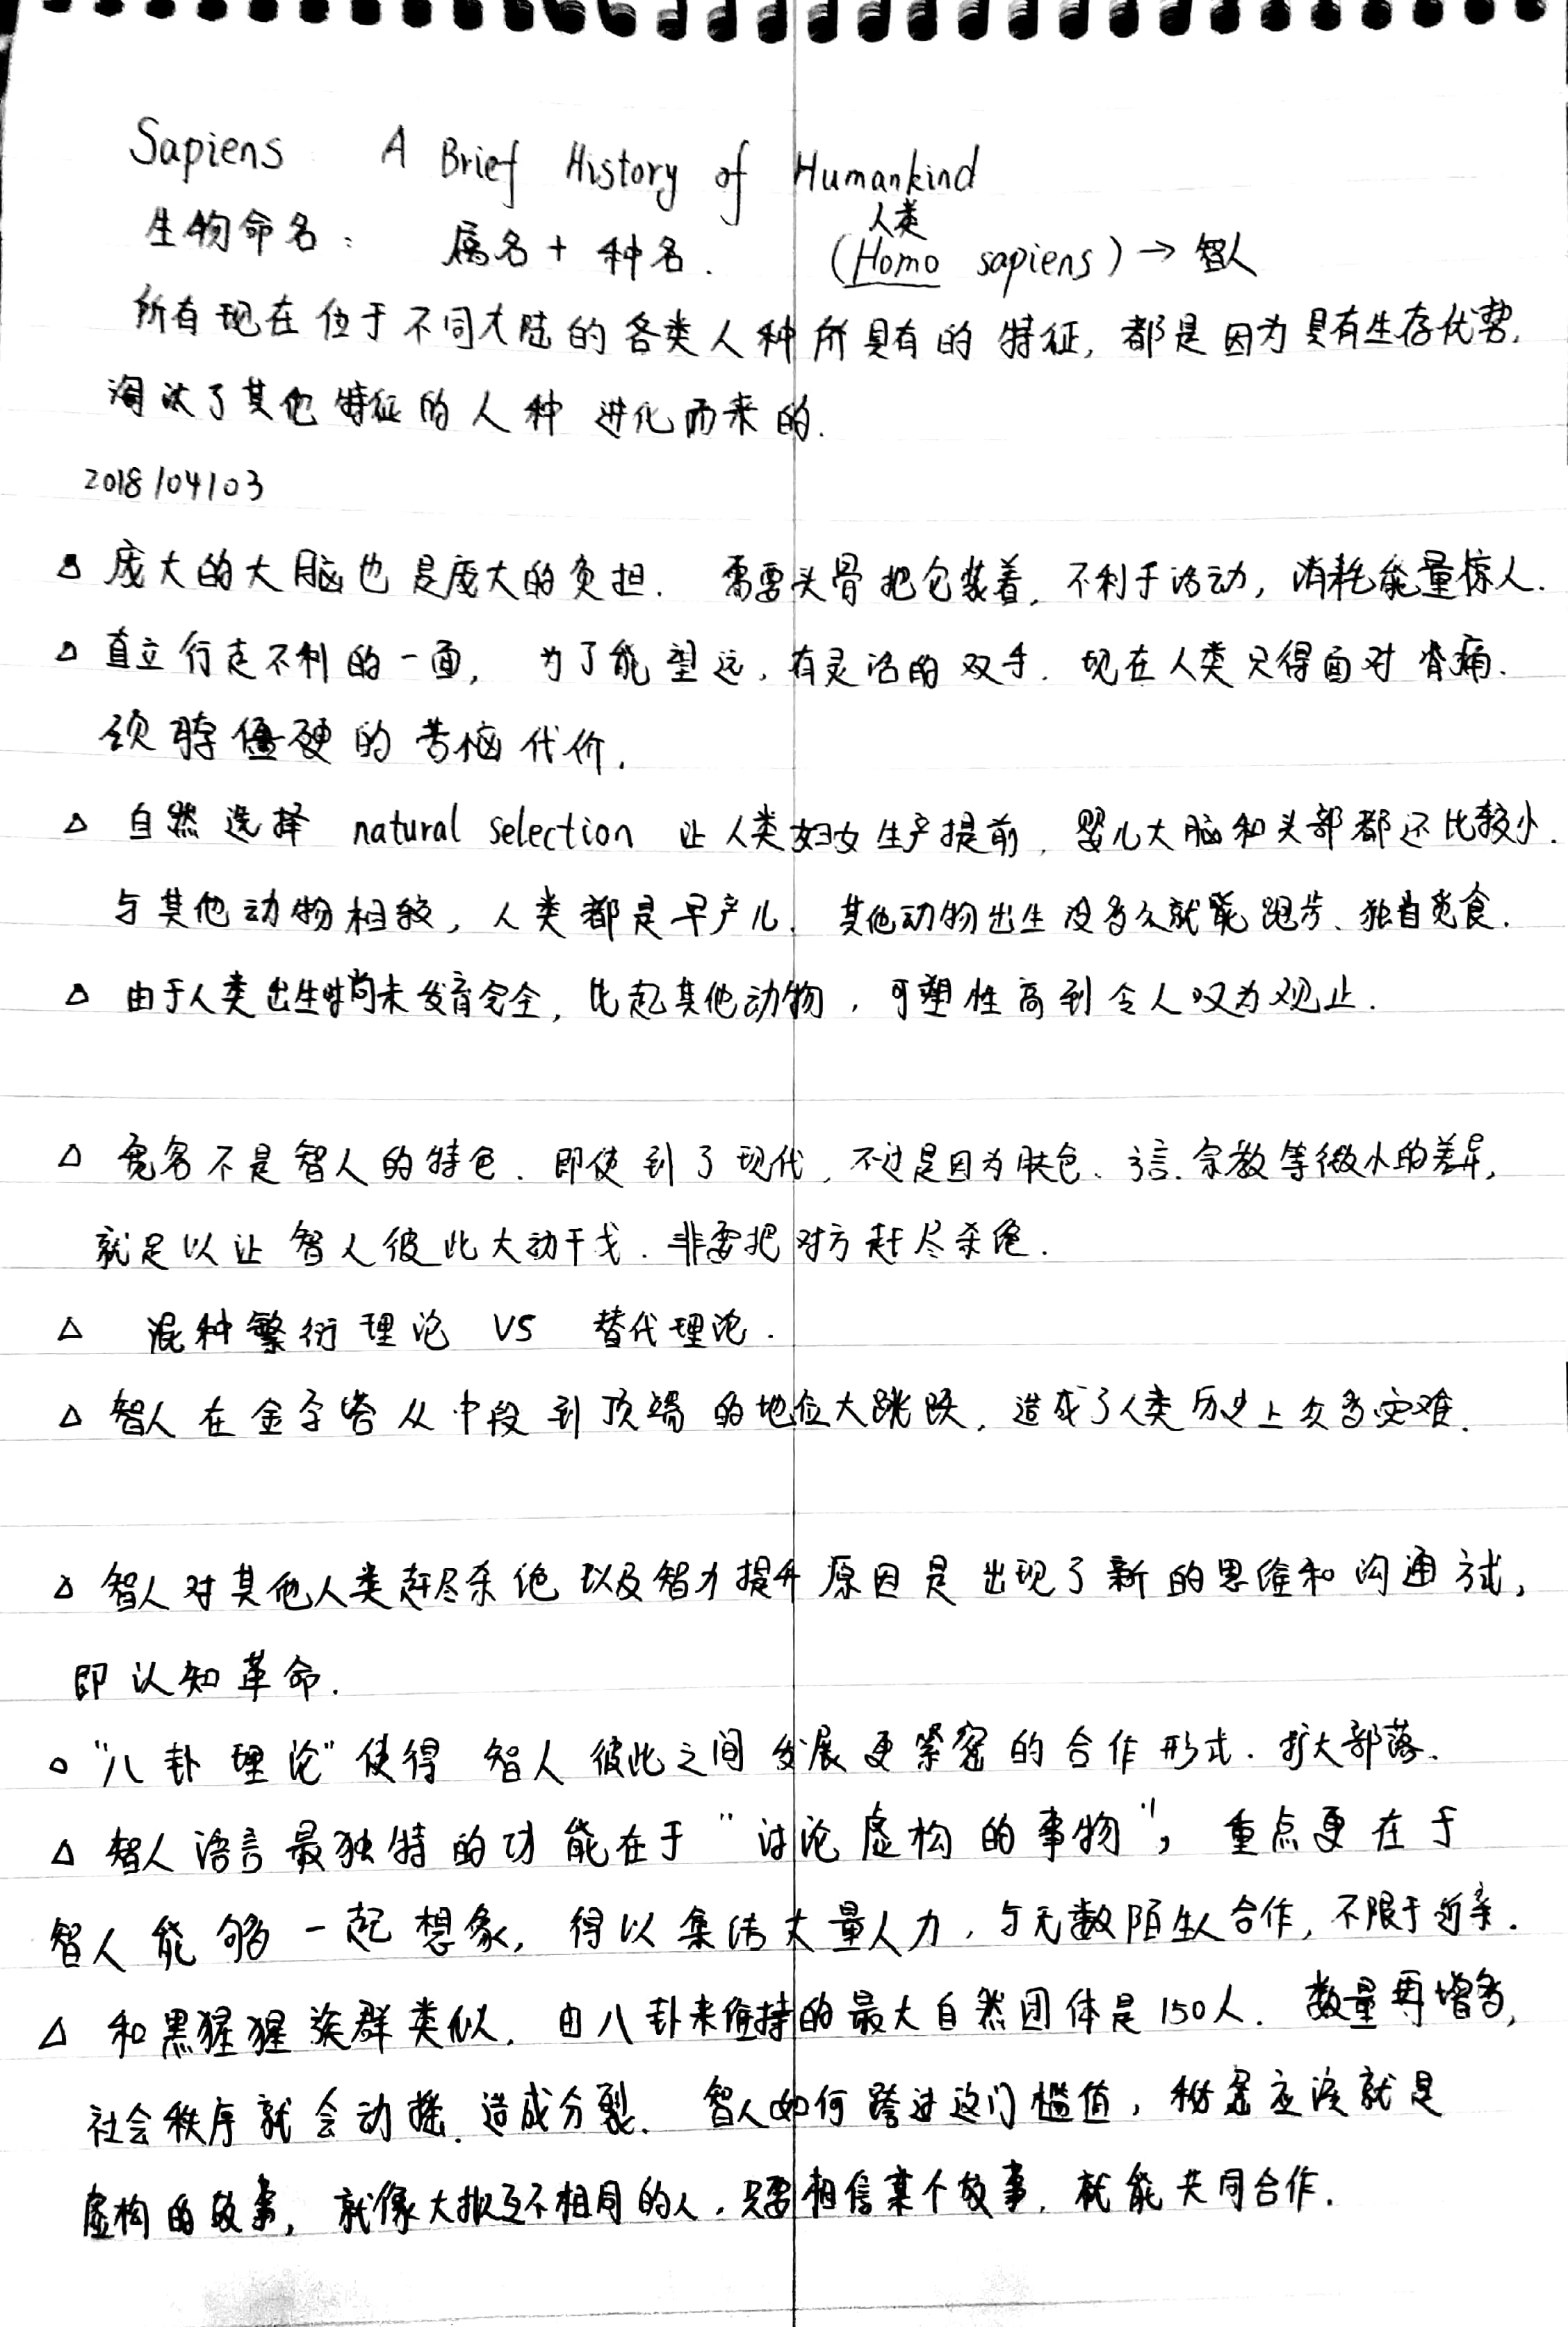 Sapiens A Brief History of Humankind
生物命名： 属名 + 种名. (Homo sapiens) → 智人
人类
所有现在位于不同大陆的各类人种所具有的特征, 都是因为具有生存优势,
淘汰了其他特征的人种进化而来的.
2018/04/03
△ 庞大的大脑也是庞大的负担. 需要头骨把它装着, 不利于活动, 消耗能量惊人.
△ 直立行走不利的一面, 为了能望远, 有灵活的双手. 现在人类只得面对背痛.
颈脖僵硬的苦恼代价.
△ 自然选择 natural selection 让人类妇女生产提前, 婴儿大脑和头部都还比较小.
与其他动物相较, 人类都是早产儿. 其他动物出生没多久就能跑步、独自觅食.
△ 由于人类出生时尚未发育完全, 比起其他动物, 可塑性高到令人叹为观止.
△ 宽容不是智人的特色. 即使到了现代, 不过是因为肤色、言. 宗教等微小的差异,
就足以让智人彼此大动干戈. 非要把对方赶尽杀绝.
△ 混种繁衍理论 VS 替代理论.
△ 智人在金字塔从中段到顶端的地位大跳跃, 造成了人类历史上众多灾难.
△ 智人对其他人类赶尽杀绝以及智力提升原因是出现了新的思维和沟通方式,
即认知革命.
△ "八卦理论" 使得智人彼此之间发展更紧密的合作形式. 扩大部落.
△ 智人语言最独特的功能在于 "讨论虚构的事物", 重点更在于
智人能够一起想象, 得以集结大量人力, 与无数陌生人合作, 不限于近亲.
△ 和黑猩猩族群类似. 由八卦来维持的最大自然团体是150人. 数量再增多,
社会秩序就会动摇. 造成分裂. 智人如何跨过这门槛值, 秘密应该就是
虚构的故事, 就像大批互不相同的人, 只要相信某个故事, 就能共同合作.